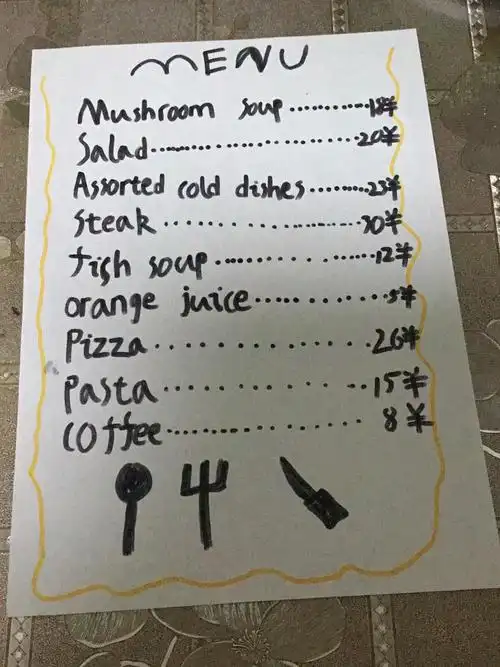 MENU
Mushroom soup ............ 18¥
Salad ........................ 20¥
Assorted cold dishes ......... 23¥
Steak ...................... 30¥
fish soup ................... 12¥
orange juice ............... 5¥
Pizza ..................... 26¥
pasta ..................... 15¥
coffee .................... 8¥